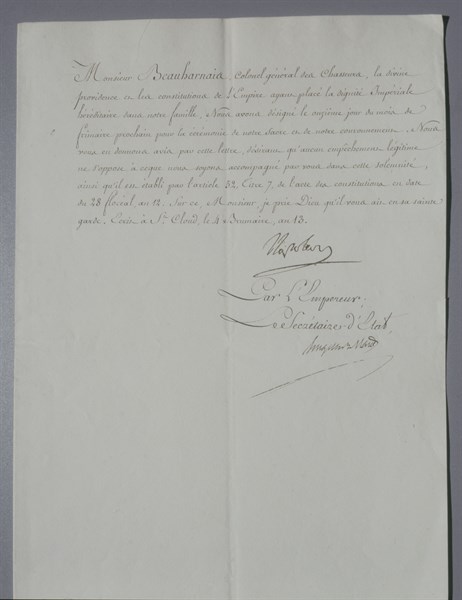 Monsieur Beauharnais, Colonel général des Chasseurs, la divine
providence et les constitutions de l'Empire ayant placé la dignité Impériale
héréditaire dans notre famille, Nous avons désigné le onzième jour du mois de
frimaire prochain pour la cérémonie de notre Sacre et de notre couronnement. Nous
vous en donnons avis par cette lettre, désirant qu'aucun empêchement légitime
ne s'oppose à ce que nous soyons accompagné par vous dans cette solemnité,
ainsi qu'il est établi par l'article 52, titre 7, de l'acte des constitutions en date
du 28 floréal, an 12. Sur ce, Monsieur, je prie Dieu qu'il vous ait en sa sainte
garde. Ecrit à St. Cloud, le 4 Brumaire, an 13.
Napoleon
Par L'Empereur,
Le Secrétaire d'Etat,